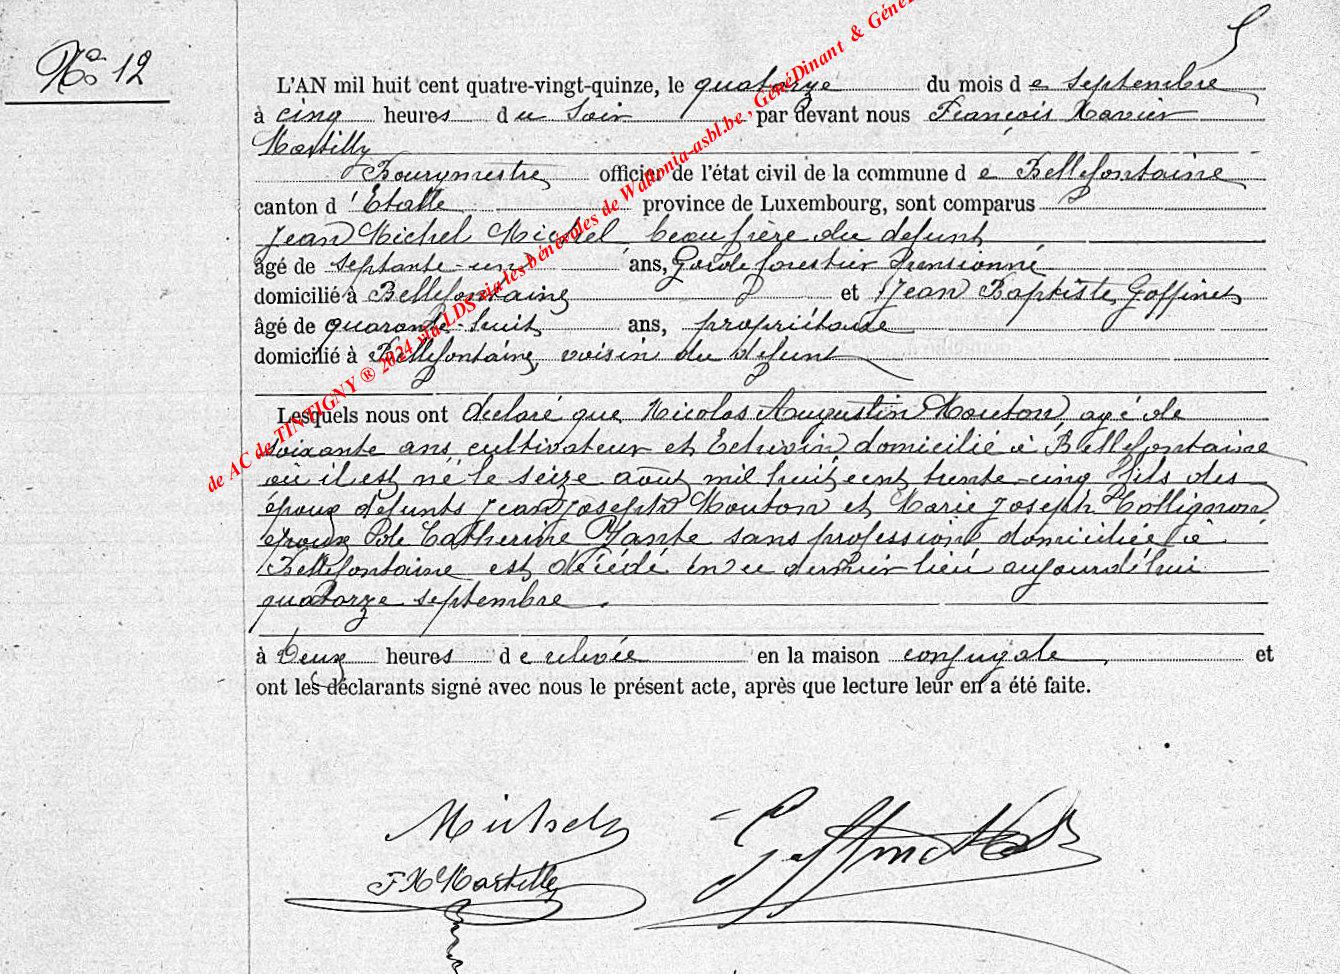 5
No 12
L'AN mil huit cent quatre-vingt-quinze, le quatorze du mois de septembre
à cinq heures du soir par devant nous François Xavier
Martilly
Bourgmestre officier de l'état civil de la commune de Bellefontaine
canton d'Etalle province de Luxembourg, sont comparus
Jean Michel Michel, beau frère du defunt
âgé de septante-un ans, Garde forestier Pensionné
domicilié à Bellefontaine et Jean Baptiste Goffinet
âgé de quarante-huit ans, propriétaire
domicilié à Bellefontaine, voisin du defunt
Lesquels nous ont declaré que Nicolas Augustin Mouton agé de
soixante ans cultivateur et Echevin domicilié à Bellefontaine
où il est né le seize août mil huit cent trente-cinq fils des
époux defunts Jean Joseph Mouton et Marie Joseph Collignon
époux de Catherine Yante sans profession domiciliée à
Bellefontaine est décédé en ce dernier lieu aujourd'hui
quatorze septembre.
à Deux heures de relevée en la maison conjugale, et
ont les déclarants signé avec nous le présent acte, après que lecture leur en a été faite.
Michel
Goffinet
F X Martilly
de AC de TINTIGNY ® 2024 via LDS via les bénévoles de Wallonia-asbl.be, GénéDinant & Géné